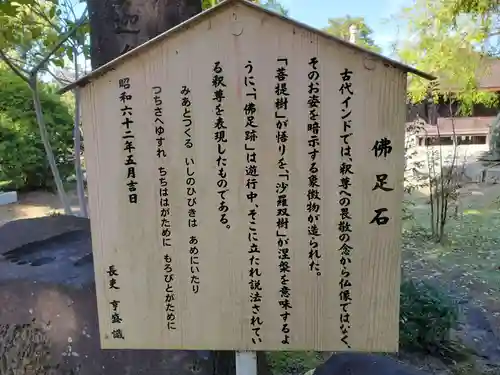 佛足石
古代インドでは、釈尊への畏敬の念から仏像ではなく、
そのお姿を暗示する象徴物が造られた。
「菩提樹」が悟りを、「沙羅双樹」が涅槃を意味するよ
うに、「佛足跡」は遊行中、そこに立たれ説法されてい
る釈尊を表現したものである。
みあとつくる いしのひびきは あめにいたり
つちさへゆすれ ちちははがために もろびとがために
昭和六十二年五月吉日
長吏